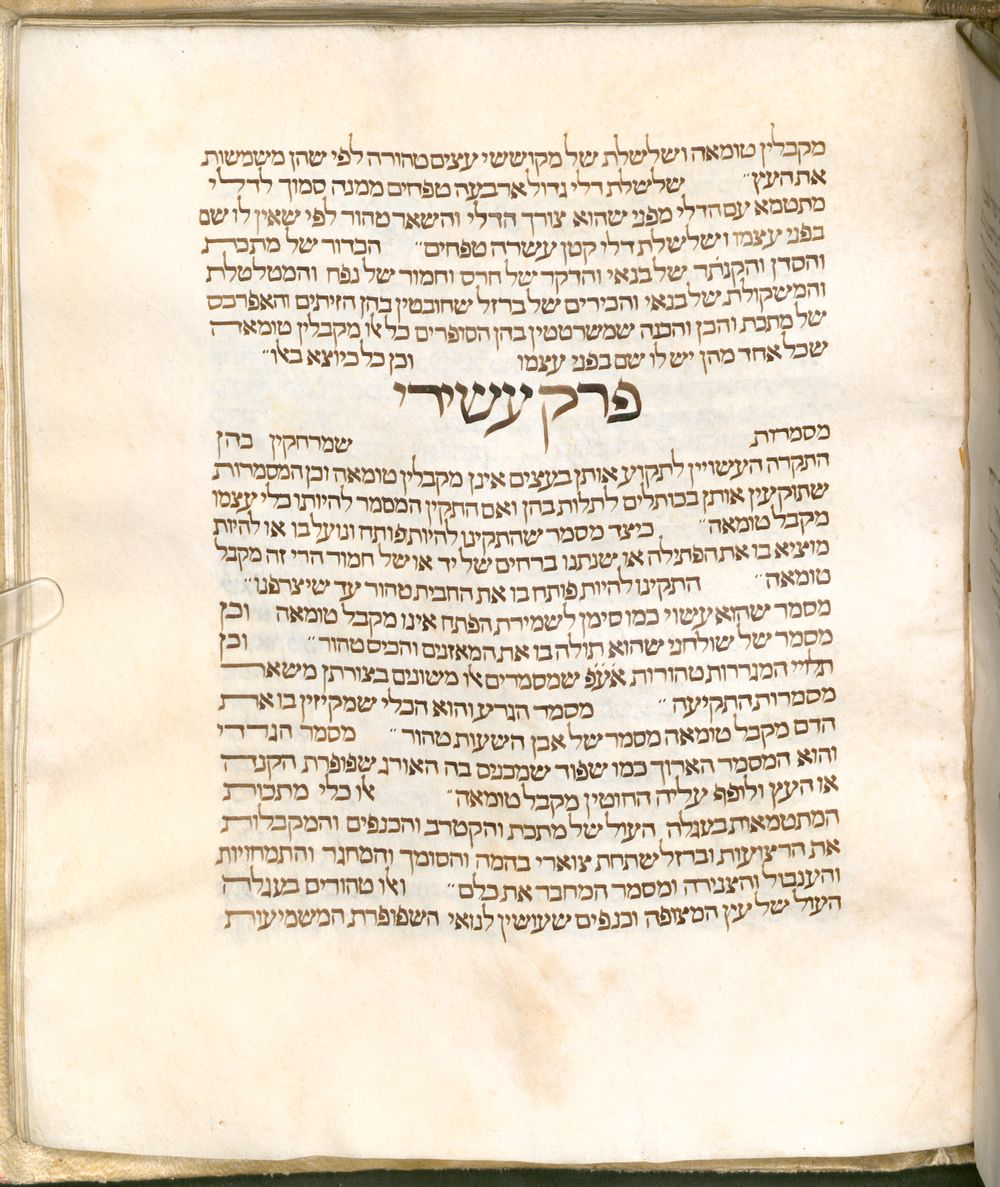 מקבלין טומאה ושלשלת של מקוששי עצים טהורה לפי שהן משמשות
את העץ״ שלשלת דלי גדול ארבעה טפחים ממנה סמוך לדלי
מתטמא עם הדלי מפני שהוא צורך הדלי והשאר טהור לפי שאין לו שם
בפני עצמו ושלשלת דלי קטן עשרה טפחים״ הכדור של מתכת
והסדן והקנתר של בנאי והדקר של חרס וחמור של נפח והמטלטלת
והמשקולת של בנאי והבירים של ברזל שחובטין בהן הזיתים והאפרכס
של מתכת והכן והכנה שמשרטטין בהן הסופרים כל אלו מקבלין טומאה
שכל אחד מהן יש לו שם בפני עצמו וכן כל כיוצא באלו״
פרק עשירי
מסמרות שמרחקין בהן
התקרה העשויין לתקוע אותן בעצים אינן מקבלין טומאה וכן המסמרות
שתוקעין אותן בכותלים לתלות בהן ואם התקין המסמר להיותו כלי עצמו
מקבל טומאה״ כיצד מסמר שהתקינו להיות פותח ונועל בו או להיות
מוציא בו את הפתילה או שנתנו ברחים של יד או של חמור הרי זה מקבל
טומאה״ התקינו להיות פותח בו את החבית טהור עד שיצרפנו״
מסמר שהוא עשוי כמו סימן לשמירת הפתח אינו מקבל טומאה וכן
מסמר של שולחני שהוא תולה בו את המאזנים והכיס טהור״ וכן
תלויי המגררות טהורות אעפ שמסמרים אלו משונים בצורתן משאר
מסמרות התקיעה״ מסמר הגרע והוא הכלי שמקיזין בו את
הדם מקבל טומאה מסמר של אבן השעות טהור״ מסמר הגרדי
והוא המסמר הארוך כמו שפור שמכניס בה האורג שפופרת הקנה
או העץ ולופף עליה החוטין מקבל טומאה״ אלו כלי מתכות
המתטמאות בעגלה העול של מתכת והקטרב והכנפים והמקבלות
את הרצועות וברזל שתחת צוארי בהמה והסומך והמחגר והתמחויות
והענבול והצנירה ומסמר המחבר את כלם״ ואלו טהורים בעגלה
העול של עץ המצופה וכנפים שעושין לנואי השפופרת המשמיעות